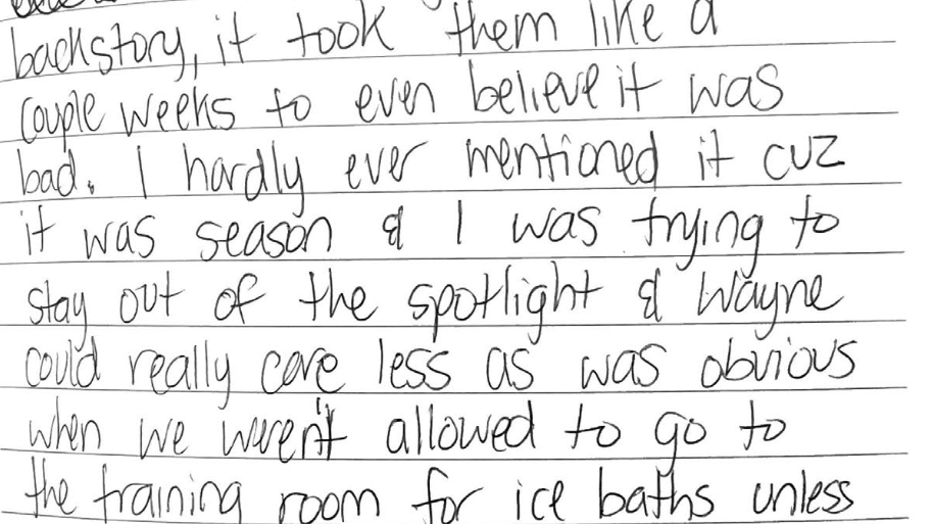 backstory, it took them like a
couple weeks to even believe it was
bad. I hardly ever mentioned it cuz
it was season & I was trying to
stay out of the spotlight & Wayne
could really care less as was obvious
when we weren't allowed to go to
the training room for ice baths unless